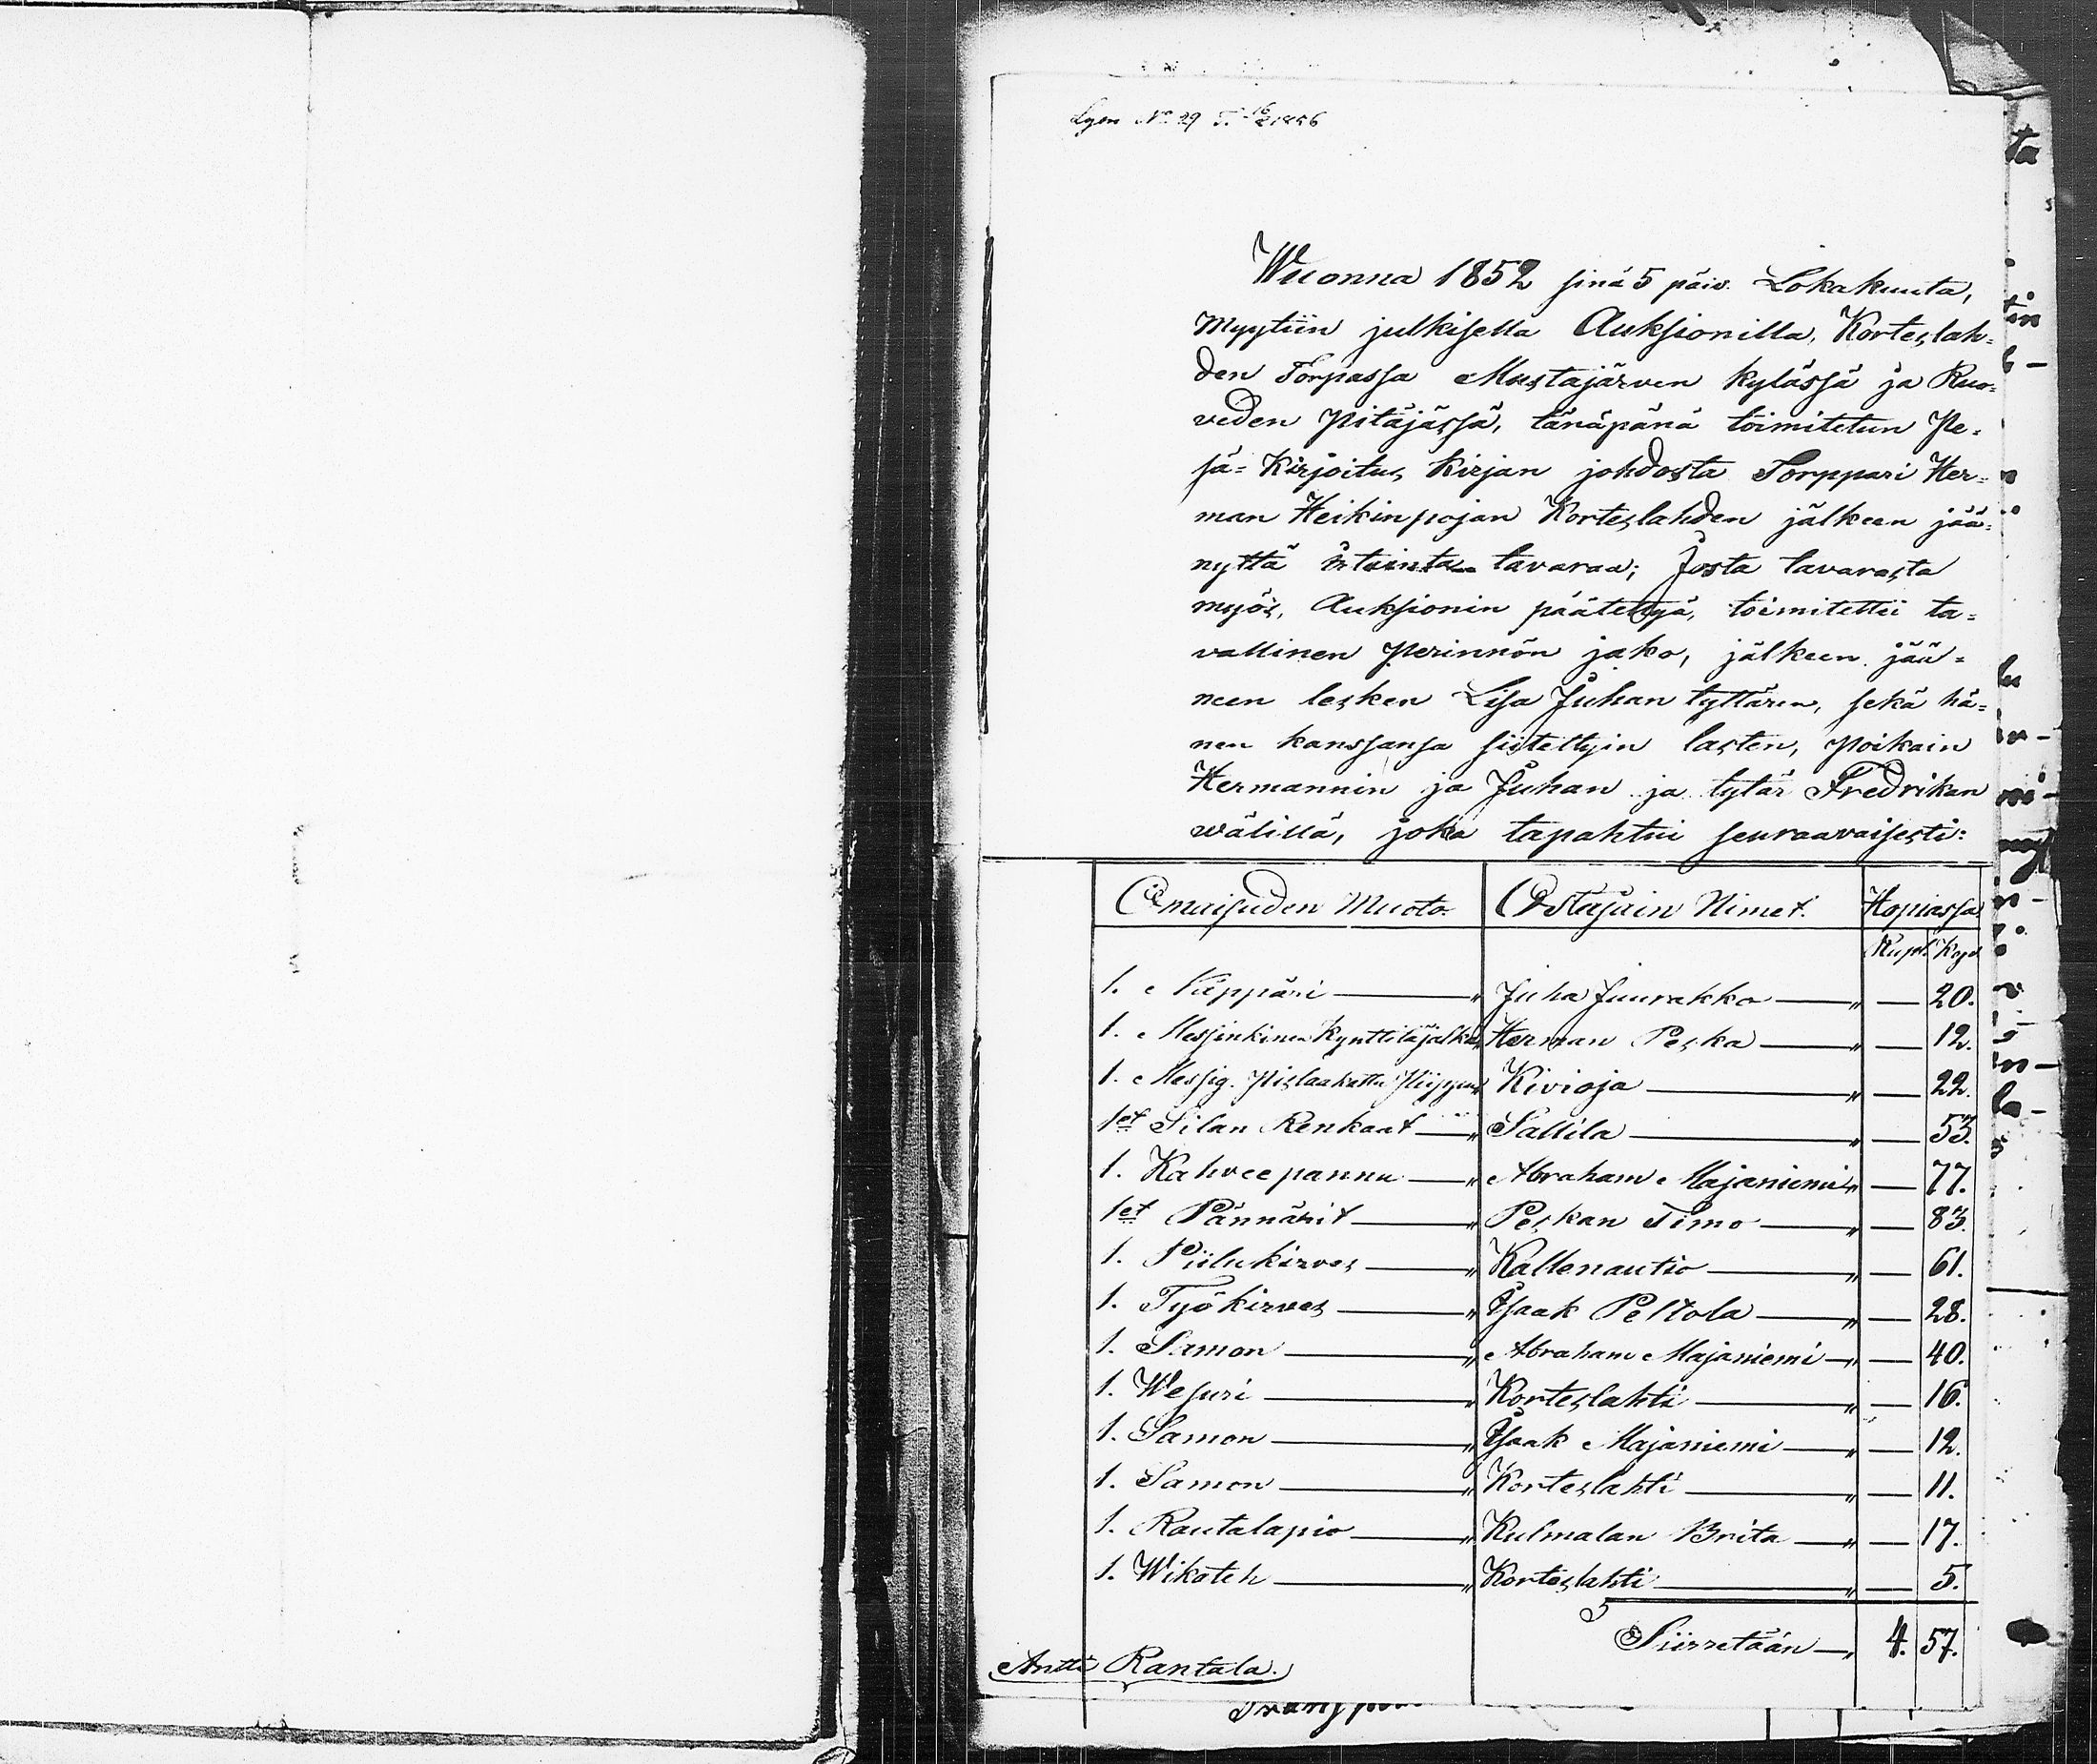 Wuonna 1852 sinä 5 päiv. Lokakuuta,
Myytiin julkisella Auksionilla, Korteslah=
den Torpassa Mustajärven kylässä ja Ruo=
veden Pitäjässä, tänäpänä toimitetun Pe=
sä=Kirjoitus Kirjan johdosta Torppari Her=
man Heikinpojan Korteslahden jälkeen jää=
nyttä irtainta tavaraa; Josta tavarasta
myös, Auksionin päätettyä, toimitettii ta=
vallinen Perinnön jako, jälkeen jää=
neen lesken Lisa Juhan tyttären, sekä hä=
nen kanssansa siitettyin lasten, Poikain
Hermannin ja Juhan ja tytär Fredrikan
wälillä, joka tapahtui seuraavaisesti:
Omaisuden Muoto. Ostajain Nimet. Hopiassa
Rupl. Kop.
1. Käppäri — " Juha Juurakko — " — 20.
1. Messinkinen Kynttiläjalka " Herman Peska — " — 12.
1. Messig. Pislaakattu Piippu " Kivioja — " — 22.
1et Silan Renkaat — " Sallila — " — 53.
1. Kahveepannu — " Abraham Majaniemi " — 77.
1et Pännärit — " Peskan Timo — " — 83.
1. Piilukirves — " Kallenautio — " — 61.
1. Työkirves — " Isaak Peltola — " — 28.
1. Samon — " Abraham Majaniemi — " — 40.
1. Wesuri — " Korteslahti — " — 16.
1. Samon — " Isaak Majaniemi — " — 12.
1. Samon — " Korteslahti — " — 11.
1. Rautalapio — " Kulmalan Brita — " — 17.
1. Wikateh — " Korteslahti — " — 5.
Siirretään — " 4. 57.
Antti Rantala.